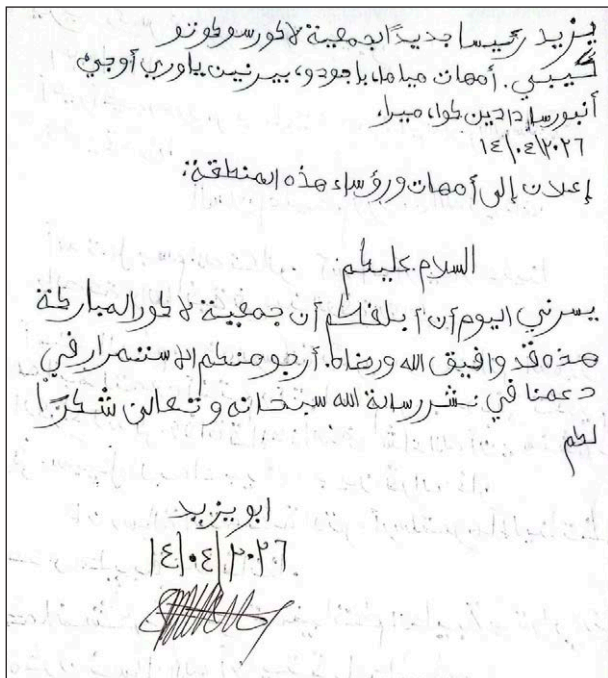 يزيد رئيسا جديدا لجمعية لاكورسوكوتو
كيبي. أمهات مياما، باجودو، بيرنين ياوري أوجي
أنبورسا دادين كوا، ميرا،
١٤/٠٤/٢٠٢٦
إعلان إلى أمهات ورؤساء هذه المنطقة:
السلام عليكم
يسرني اليوم أن أبلغكم أن جمعية لاكور المباركة
هذه قد وافيق الله ورضاه. أرجو منكم الاستمرار في
دعمنا في نشر رسالة الله سبحانه وتعالى شكرًا
لكم
ابو يزيد
١٤/٠٤/٢٠٢٦